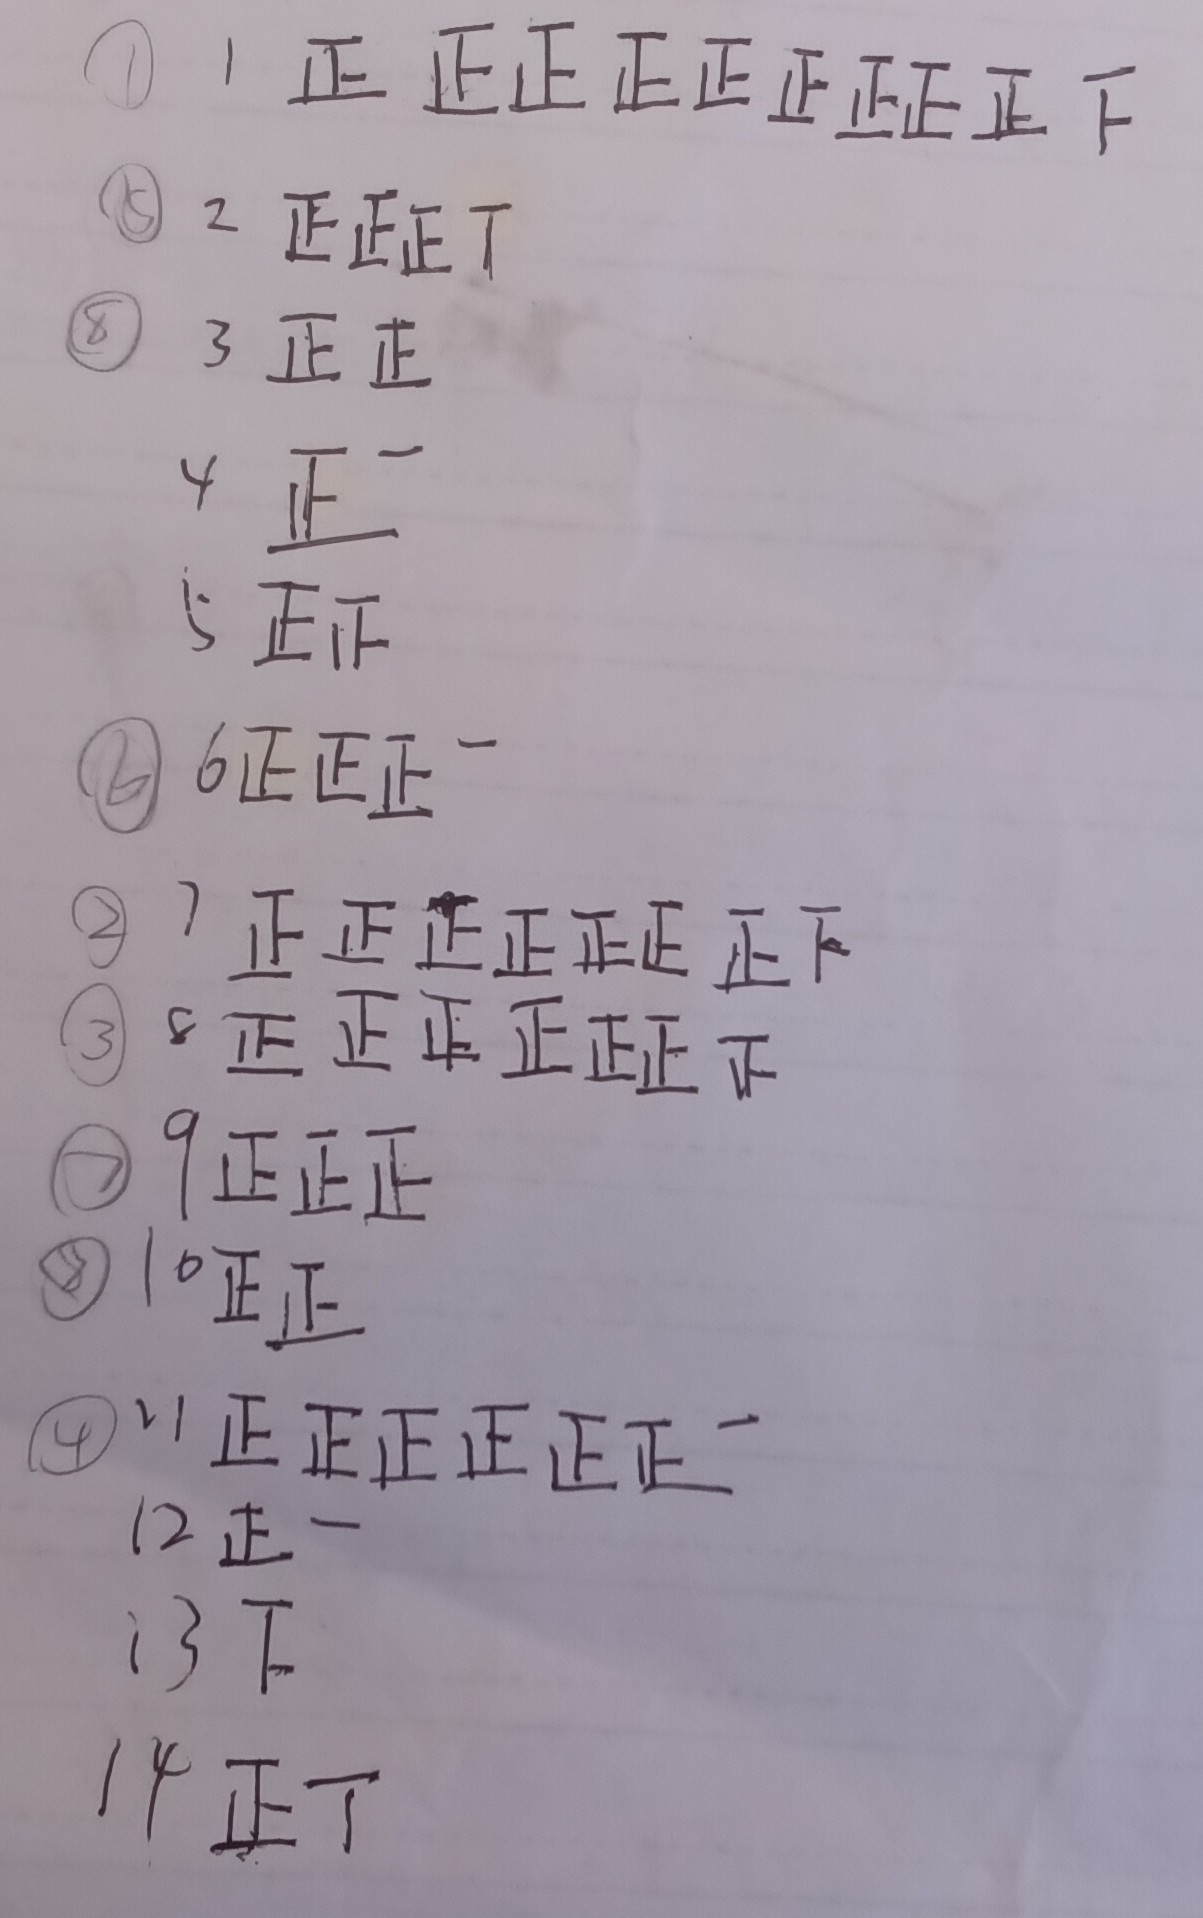 ① 1 正 正 正 正 正 正 正 正 正 下
⑤ 2 正 正 正 丅
⑧ 3 正 正
4 正 一
5 正 止
⑥ 6 正 正 正 一
② 7 正 正 正 正 正 正 正 下
③ 8 正 正 正 正 正 正 下
⑦ 9 正 正 正
⑧ 10 正 正
④ 11 正 正 正 正 正 正 一
12 正 一
13 下
14 正 丅